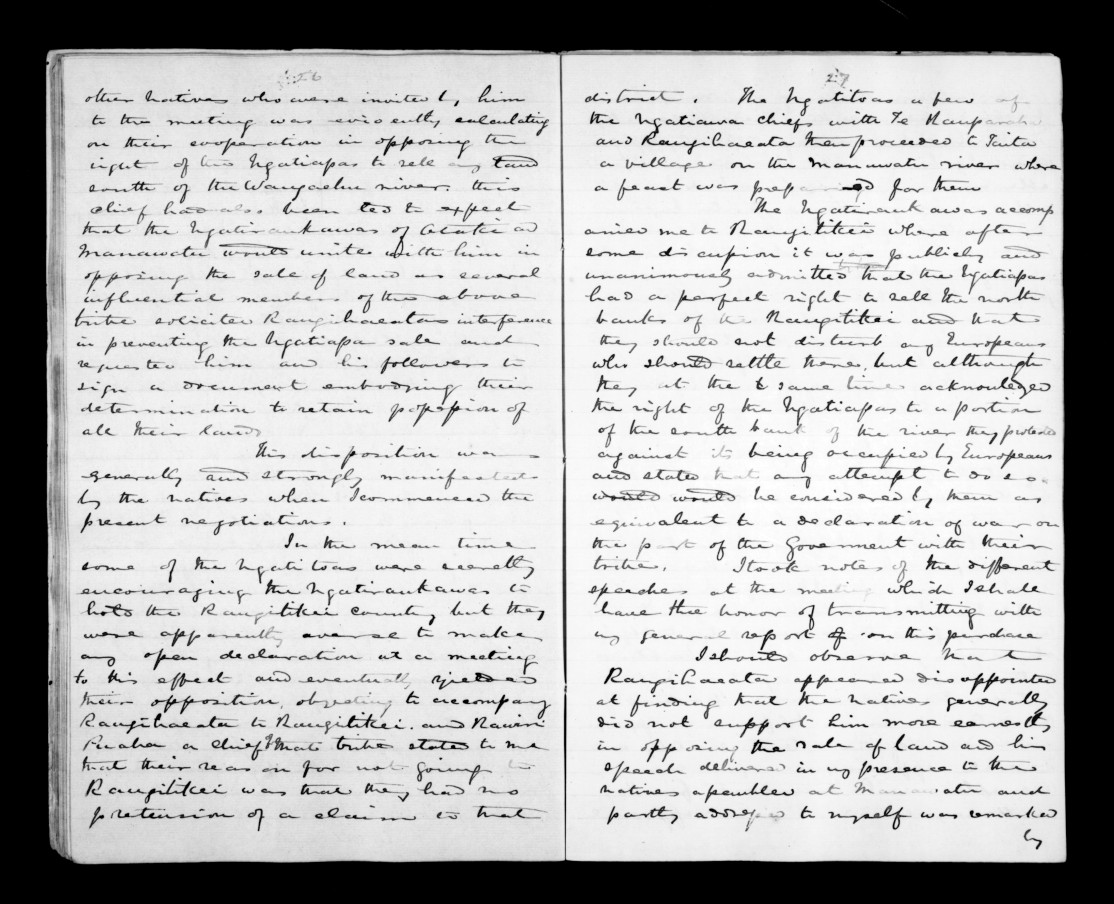 26
other Natives who were invited by him
to the meeting was evidently calculating
on their cooperation in opposing the
right of the Ngatiapas to sell any land
south of the Wangaehu river. this
chief had also been led to expect
that the Ngatiraukawas of Otaki and
Manawatu would unite with him in
opposing the sale of land as several
influential members of the above
tribe solicited Rangihaeatas interference
in preventing the Ngatiapa sale and
requested him and his followers to
sign a document embodying their
determination to retain possession of
all their lands
This disposition was
generally and strongly manifested
by the natives when I commenced the
present negotiations.
In the mean time
some of the Ngatitoas were secretly
encouraging the Ngatiraukawas to
hold the Rangitikei country but they
were apparently averse to make
any open declaration at a meeting
to this effect and eventually
their opposition, objecting to accompany
Rangihaeata to Rangitikei. and Rawiri
Puaha a chief of that tribe stated to me
that their reason for not going to
Rangitikei was that they had no
pretension of a claim to that
27
district. The Ngatitoas a few of
the Ngatiawa chiefs with Te Rauparaha
and Rangihaeata then proceeded to Taita
a village on the Manawatu river where
a feast was prepared for them
The Ngatiraukawas accomp
anied me to Rangitikei where after
some discussion it was publicly and
unanimously admitted that the Ngatiapas
had a perfect right to sell the north
banks of the Rangitikei and that
they should not disturb any Europeans
who should settle there, but although
they at the same time acknowledged
the right of the Ngatiapas to a portion
of the south bank of the river they protested
against its being occupied by Europeans
and stated that any attempt to do so
would would be considered by them as
equivalent to a declaration of war on
the part of the Goverment with their
tribe. I took notes of the different
speeches at the meeting which I shall
have the honor of transmitting with
my general report of on this purchase
I should observe that
Rangihaeata appeared disappointed
at finding that the natives generally
did not support him more earnestly
in opposing the sale of land and his
speech delivered in my presence to the
natives assembled at Manawatu and
partly addressed to myself was remarked
by